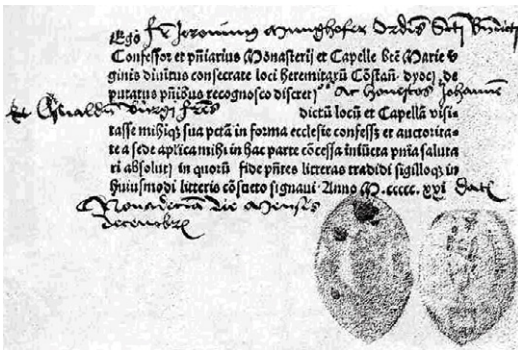 Ego fr Jeronim9 Ordis Scti
Confessor et pñiarius Monasterij et Capelle btẽ Marie v
ginis diuinitus consecrate loci heremitarũ Cõstañ· dyoc̃· de
putatus pñibus recognosco discret Ac honestos Johannẽ
et Osvaldũ frẽs dictũ locũ et Capellã visi-
tasse mihiq3 sua pctã in forma ecclesie confessos et auctorita-
te a sede aplica mihi in hac parte cõcessa iniũcta pnia saluta
ri absolui· in quorũ fide pñtes litteras tradidi sigilloq3 in
huiusmodi litteris cõsueto signaui· Anno M·ccccc·xxi Datẽ
die Mensis
decembr